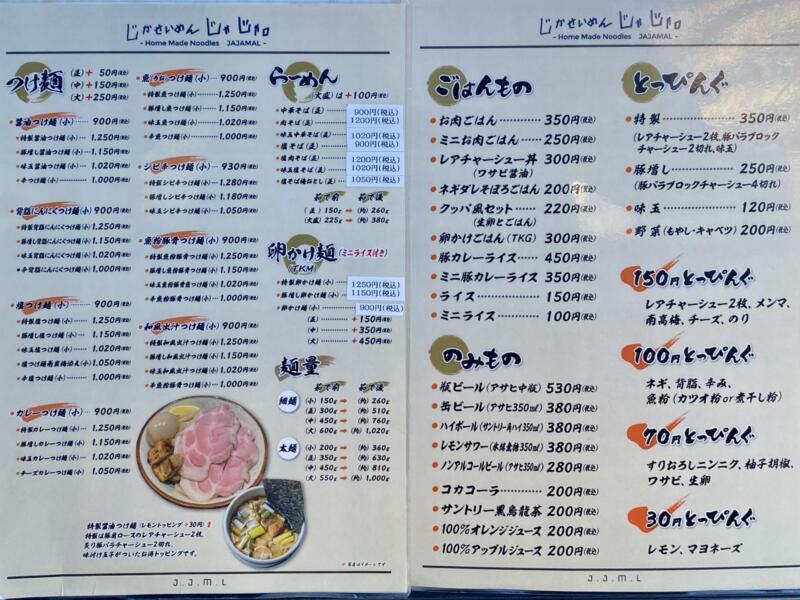 じかせいめん じゃじゃ。
- Home Made Noodles JAJAMAL -
つけ麺
(並)+ 50円(税込)
(中)+150円(税込)
(大)+250円(税込)
醤油つけ麺(小)… 900円(税込)
特製醤油つけ麺(小)…1,250円(税込)
豚増し醤油つけ麺(小)…1,150円(税込)
味玉醤油つけ麺(小)…1,020円(税込)
辛つけ麺(小)…1,000円(税込)
背脂にんにくつけ麺(小)900円(税込)
特製背脂にんにくつけ麺(小)1,250円(税込)
豚増し背脂にんにくつけ麺(小)1,150円(税込)
味玉背脂にんにくつけ麺(小)1,020円(税込)
辛背脂にんにくつけ麺(小)1,000円(税込)
塩つけ麺(小)… 900円(税込)
特製塩つけ麺(小)…1,250円(税込)
豚増し塩つけ麺(小)…1,150円(税込)
味玉塩つけ麺(小)…1,020円(税込)
塩つけ麺南高梅添え(小)…1,050円(税込)
辛塩つけ麺(小)…1,000円(税込)
カレーつけ麺(小)… 900円(税込)
特製カレーつけ麺(小)…1,250円(税込)
豚増しカレーつけ麺(小)…1,150円(税込)
味玉カレーつけ麺(小)…1,020円(税込)
チーズカレーつけ麺(小)…1,050円(税込)
つけ麺(小)… 900円(税込)
特製魚つけ麺(小)…1,250円(税込)
豚増し魚つけ麺(小)…1,150円(税込)
味玉魚つけ麺(小)…1,020円(税込)
辛魚つけ麺(小)…1,000円(税込)
シビ辛つけ麺(小)… 930円(税込)
特製シビ辛つけ麺(小)…1,280円(税込)
豚増しシビ辛つけ麺(小)…1,180円(税込)
味玉シビ辛つけ麺(小)…1,050円(税込)
魚粉豚骨つけ麺(小) 900円(税込)
特製魚粉豚骨つけ麺(小)…1,250円(税込)
豚増し魚粉豚骨つけ麺(小)…1,150円(税込)
味玉魚粉豚骨つけ麺(小)…1,020円(税込)
辛魚粉豚骨つけ麺(小)…1,000円(税込)
和風出汁つけ麺(小) 900円(税込)
特製和風出汁つけ麺(小)…1,250円(税込)
豚増し和風出汁つけ麺(小)…1,150円(税込)
味玉和風出汁つけ麺(小)…1,020円(税込)
辛和風出汁つけ麺(小)…1,000円(税込)
らーめん
(大盛)は+100円(税込)
中華そば(並)… 900円(税込)
肉そば(並)… 1200円(税込)
味玉中華そば(並)… 1020円(税込)
塩そば(並)… 900円(税込)
塩肉そば(並)… 1200円(税込)
味玉塩そば(並)… 1020円(税込)
塩そば梅おとし(並)… 1050円(税込)
茹で前 茹で後
(並) 150g ➡ (約) 260g
(大盛) 225g ➡ (約) 380g
卵かけ麺(ミニライス付き)
(TKM)
特製卵かけ麺(小)… 1250円(税込)
豚増し卵かけ麺(小)… 1150円(税込)
卵かけ麺(小)… 900円(税込)
(並)…+150円(税込)
(中)…+350円(税込)
(大)…+450円(税込)
麺量 茹で前 茹で後
細麺
(小) 150g ➡ (約) 260g
(並) 300g ➡ (約) 510g
(中) 450g ➡ (約) 760g
(大) 600g ➡ (約) 1,020g
太麺
(小) 200g ➡ (約) 360g
(並) 350g ➡ (約) 630g
(中) 450g ➡ (約) 810g
(大) 550g ➡ (約) 1,000g
特製醤油つけ麺(レモントッピング+30円)
特製は豚肩ロースのレアチャーシュー2枚、
炙り豚バラチャーシュー2切れ、
味付け玉子がついたお得トッピングです。
写真はイメージです
J.J.M.L
じかせいめん じゃじゃ。
- Home Made Noodles JAJAMAL -
ごはんもの
お肉ごはん…350円(税込)
ミニお肉ごはん…250円(税込)
レアチャーシュー丼 300円(税込)
(ワサビ醤油)
ネギダレそぼろごはん 200円(税込)
クッパ風セット…220円(税込)
(生卵とごはん)
卵かけごはん(TKG) 300円(税込)
豚カレーライス…450円(税込)
ミニ豚カレーライス 350円(税込)
ライス…150円(税込)
ミニライス…100円(税込)
のみもの
瓶ビール(アサヒ中瓶) 530円(税込)
缶ビール(アサヒ350ml) 380円(税込)
ハイボール(サントリー角ハイ350ml) 380円(税込)
レモンサワー(本搾食橋350ml) 380円(税込)
ノンアルコールビール(アサヒ350ml) 280円(税込)
コカコーラ…200円(税込)
サントリー黒烏龍茶…200円(税込)
100%オレンジジュース 200円(税込)
100%アップルジュース 200円(税込)
とっぴんぐ
特製…350円(税込)
(レアチャーシュー2枚、豚バラブロック
チャーシュー2切れ、味玉)
豚増し…250円(税込)
(豚バラブロックチャーシュー4切れ)
味玉…120円(税込)
野菜(もやし・キャベツ) 200円(税込)
150円とっぴんぐ
レアチャーシュー2枚、メンマ、
南高梅、チーズ、のり
100円とっぴんぐ
ネギ、背脂、辛み、
魚粉(カツオ粉or煮干し粉)
70円とっぴんぐ
すりおろしニンニク、柚子胡椒、
ワサビ、生卵
30円とっぴんぐ
レモン、マヨネーズ
J.J.M.L